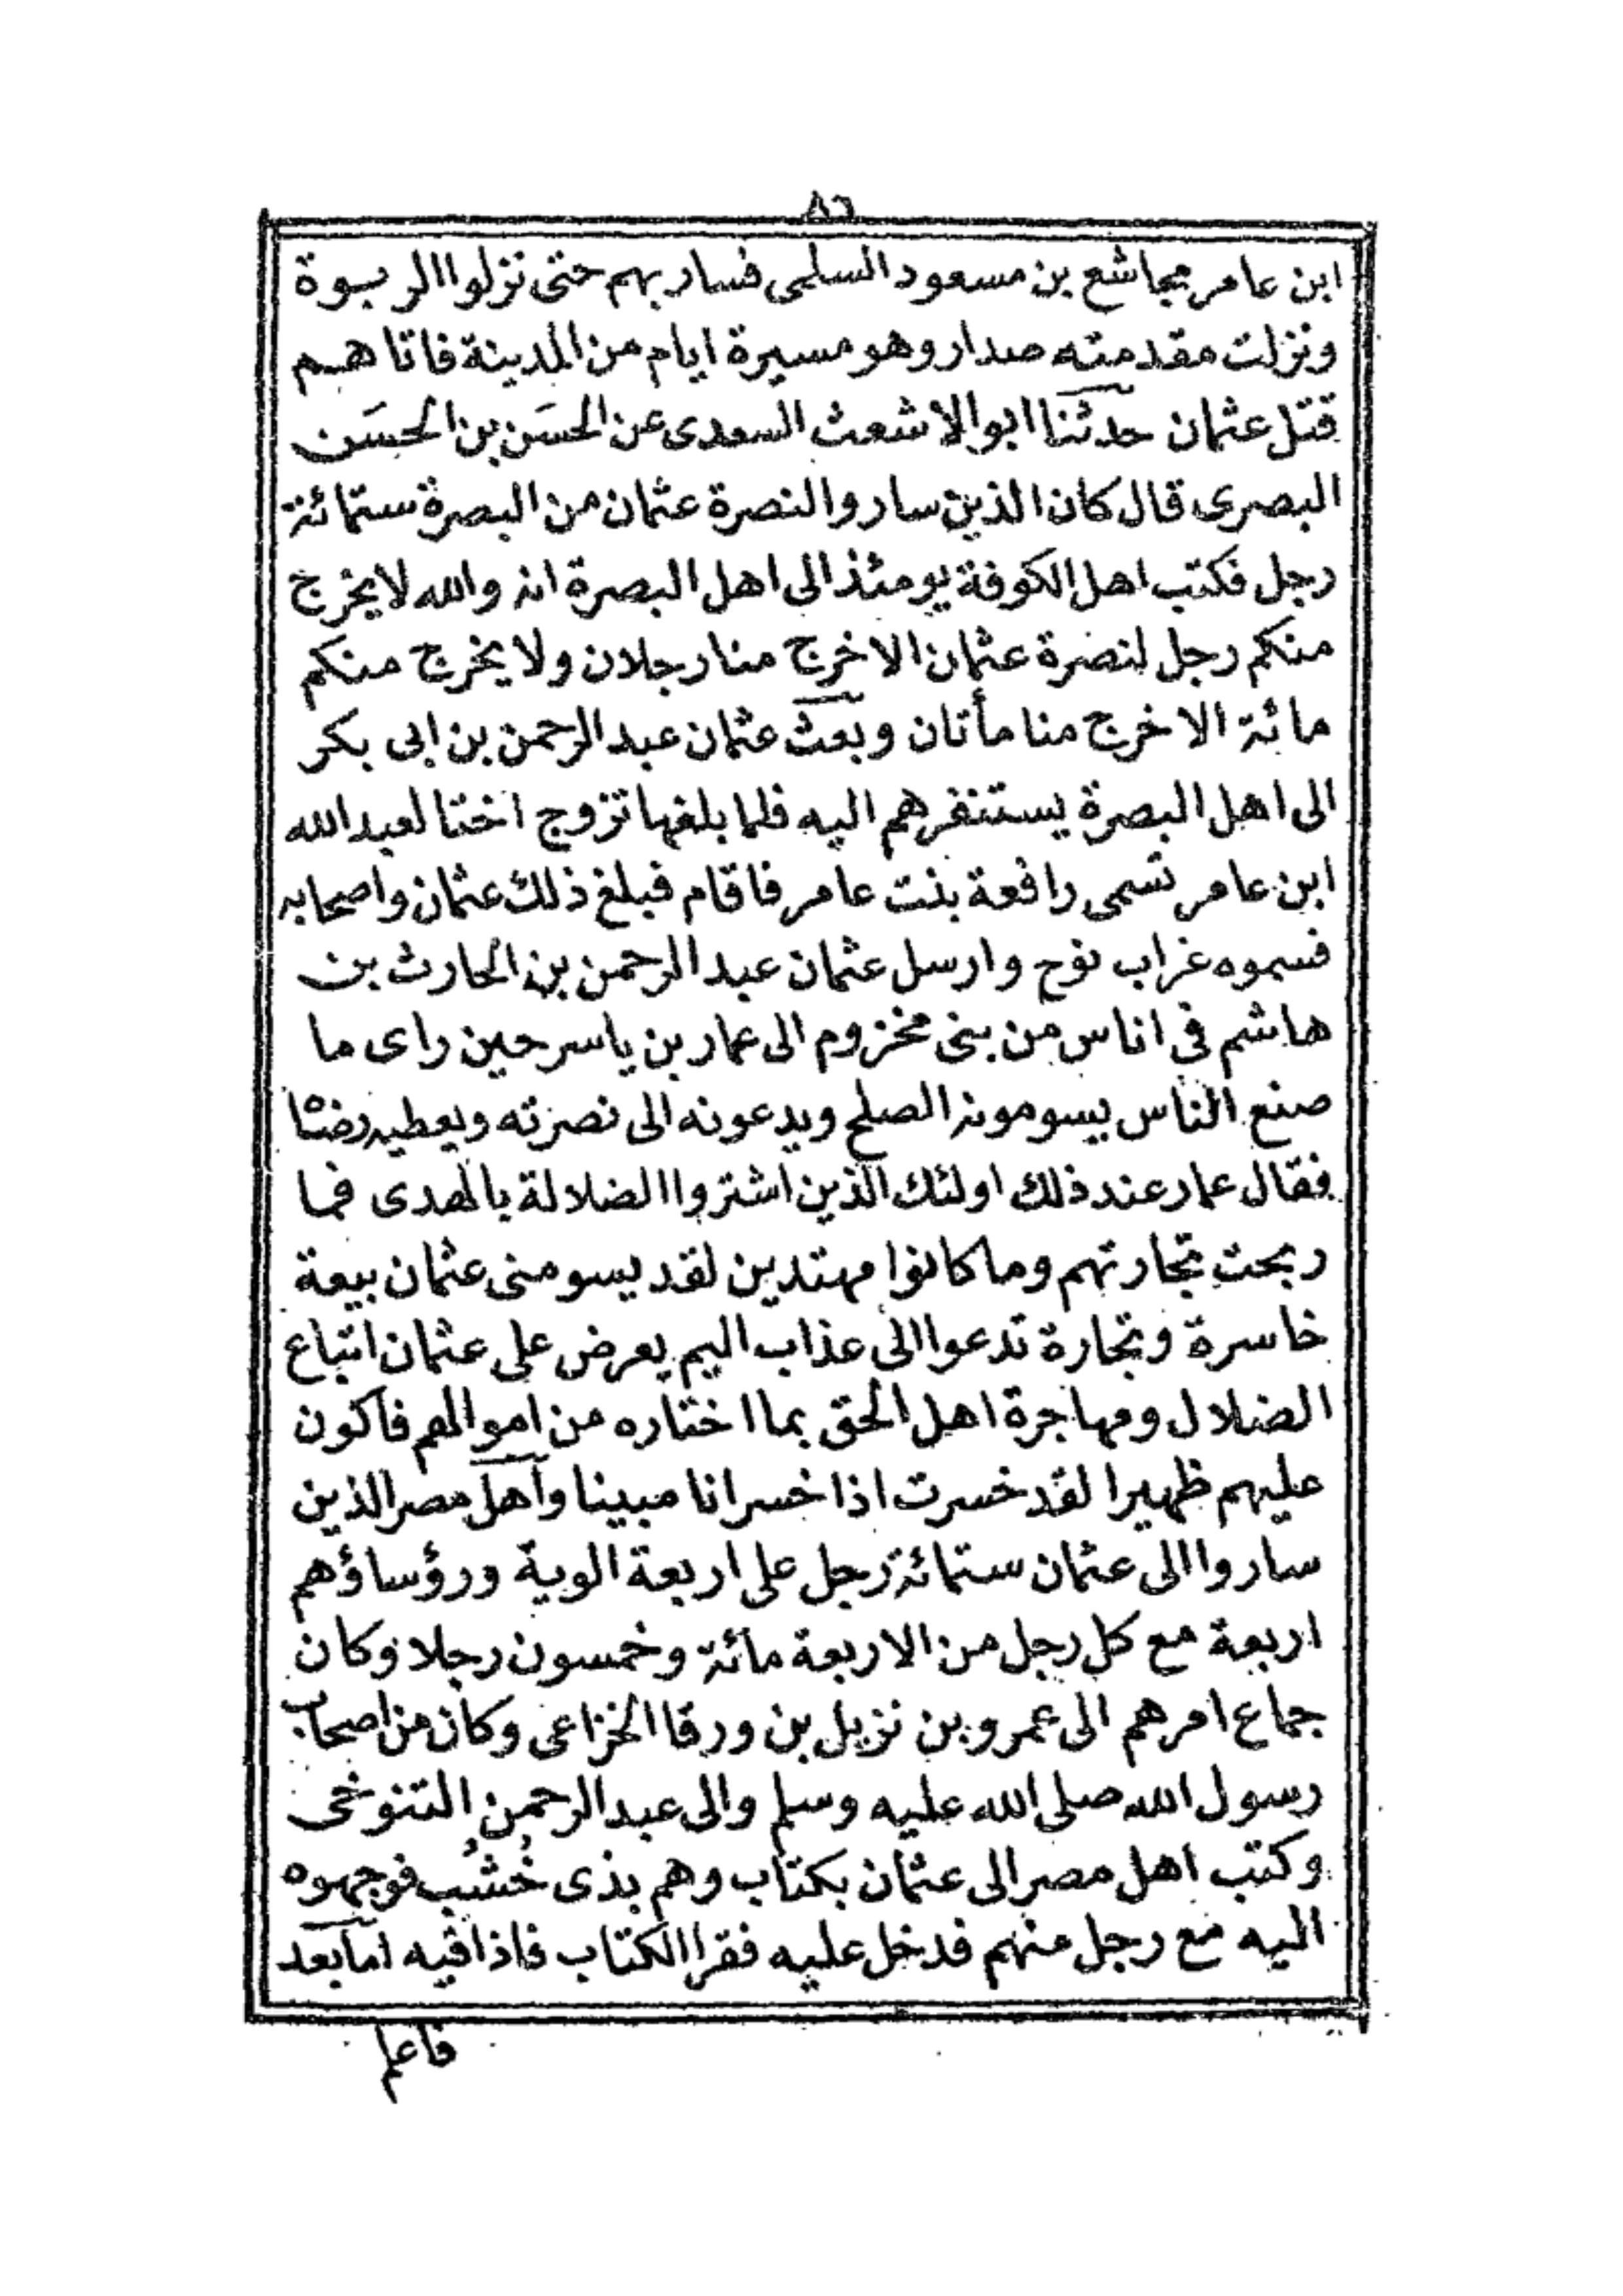 ٨٦
ابن عامر مجاشع بن مسعود السلمى فسار بهم حتى نزلوا الربوة
ونزلت مقدمته صدار وهو مسيرة ايام من المدينة فاتاهم
قتل عثمان حدثنا ابو الاشعث السعدى عن الحسَن بن الحسَن
البصرى قال كان الذين ساروا لنصرة عثمان من البصرة ستمائة
رجل فكتب اهل الكوفة يومئذ الى اهل البصرة انه والله لا يخرج
منكم رجل لنصرة عثمان الا خرج منا رجلان ولا يخرج منكم
مائة الا خرج منا مأتان وبعث عثمان عبد الرحمن بن ابى بكر
الى اهل البصرة يستنفرهم اليه فلما بلغها تزوج اختا لعبد الله
ابن عامر تسمى رافعة بنت عامر فاقام فبلغ ذلك عثمان واصحابه
فسموه غراب نوح وارسل عثمان عبد الرحمن بن الحارث بن
هاشم فى اناس من بنى مخزوم الى عمار بن ياسر حين راى ما
صنع الناس يسومونه الصلح ويدعونه الى نصرته ويعطيه رضاه
فقال عمار عند ذلك اولئك الذين اشتروا الضلالة بالهدى فما
ربحت تجارتهم وما كانوا مهتدين لقد يسومنى عثمان بيعة
خاسرة وتجارة تدعوا الى عذاب اليم يعرض على عثمان اتباع
الضلال ومهاجرة اهل الحق بما اختاره من اموالهم فاكون
عليهم ظهيرا لقد خسرت اذا خسرانا مبينا وأهل مصر الذين
ساروا الى عثمان ستمائة رجل على اربعة الوية ورؤساؤهم
اربعة مع كل رجل من الاربعة مائة وخمسون رجلا وكان
جماع امرهم الى عمرو بن نزيل بن ورقا الخزاعى وكان من اصحاب
رسول الله صلى الله عليه وسلم والى عبد الرحمن التنوخى
وكتب اهل مصر الى عثمان بكتاب وهم بذى خُشُب فوجهوه
اليه مع رجل منهم فدخل عليه فقرا الكتاب فاذا فيه اما بعد
فاعلم